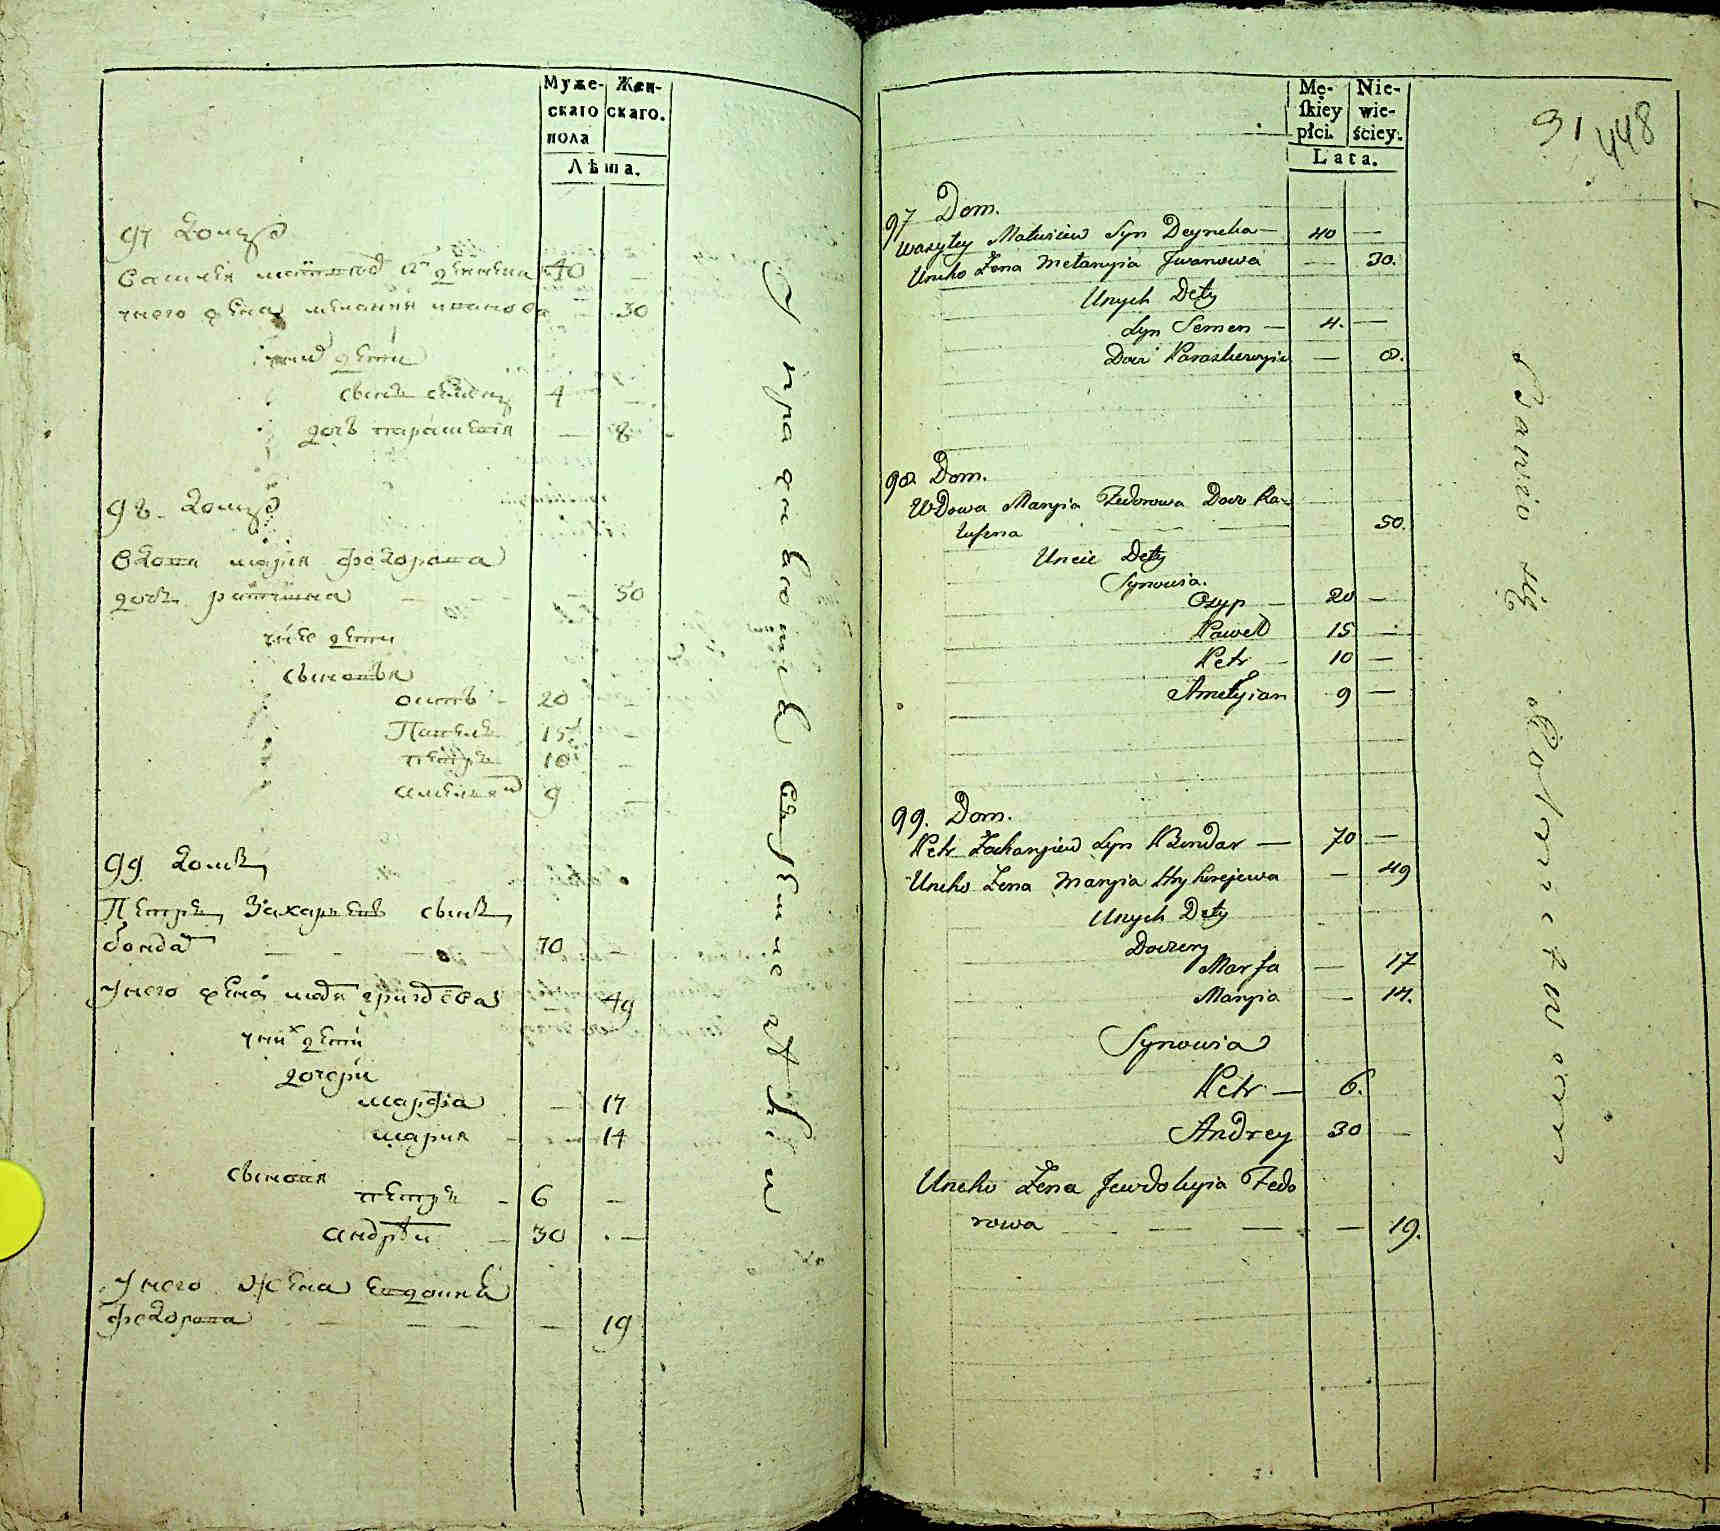 Муже-
скаго
пола
Жен-
скаго.
Лѣта.
97 домъ
40 —
унего жена мелания иванова — 30
унихъ дети
сынъ семенъ 4 —
дочь параскевия — 8
98. домъ
вдова мария федорова
дочь — — — 50
унее дети
сыновья
осипъ — 20
Павелъ 15 —
петръ 10 —
емелиянъ 9 —
99 домъ
Петръ Захариевъ сынъ
бондарь — — — 70 —
унего жена мария григорьева 49
унихъ дети
дочери
марфа — 17
мария — 14
сыновя
петръ — 6 —
андрей — 30 —
унего жена евдокия
федорова — — — — 19
Mę-
skiey
płci.
Nie-
wie-
ściey.
Lata.
31
448
97 Dom.
Wasyley Matwiiew Syn Deyneka — 40 —
Uneho Żena Melanyia Jwanowa — 30.
Unych Dety
Syn Semen — 4. —
Docz Paraskewyia — 8.
98. Dom.
Wdowa Maryia Fedorowa Docz 50.
Uneie Dety
Synowia.
Osyp — 20 —
Paweł 15 —
Petr — 10 —
Amełyian 9 —
99. Dom.
Petr Zacharyiew Syn Bondar — 70 —
Uneho Żena Maryia Hryhorejewa — 49
Unych Dety
Doczery
Marfa — 17
Maryia — 14.
Synowia
Petr — 6.
Andrey 30 —
Uneho Żena Jewdokyia Fedo
rowa — — — — 19.